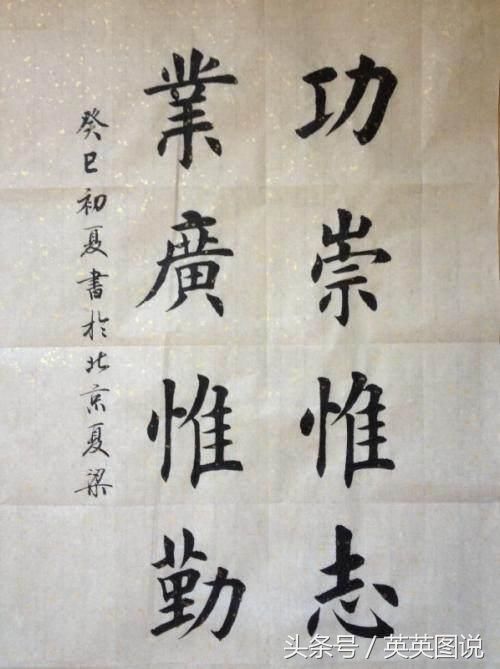 功崇惟志
業廣惟勤
癸巳初夏書於北京夏梁
头条号 / 英英图说